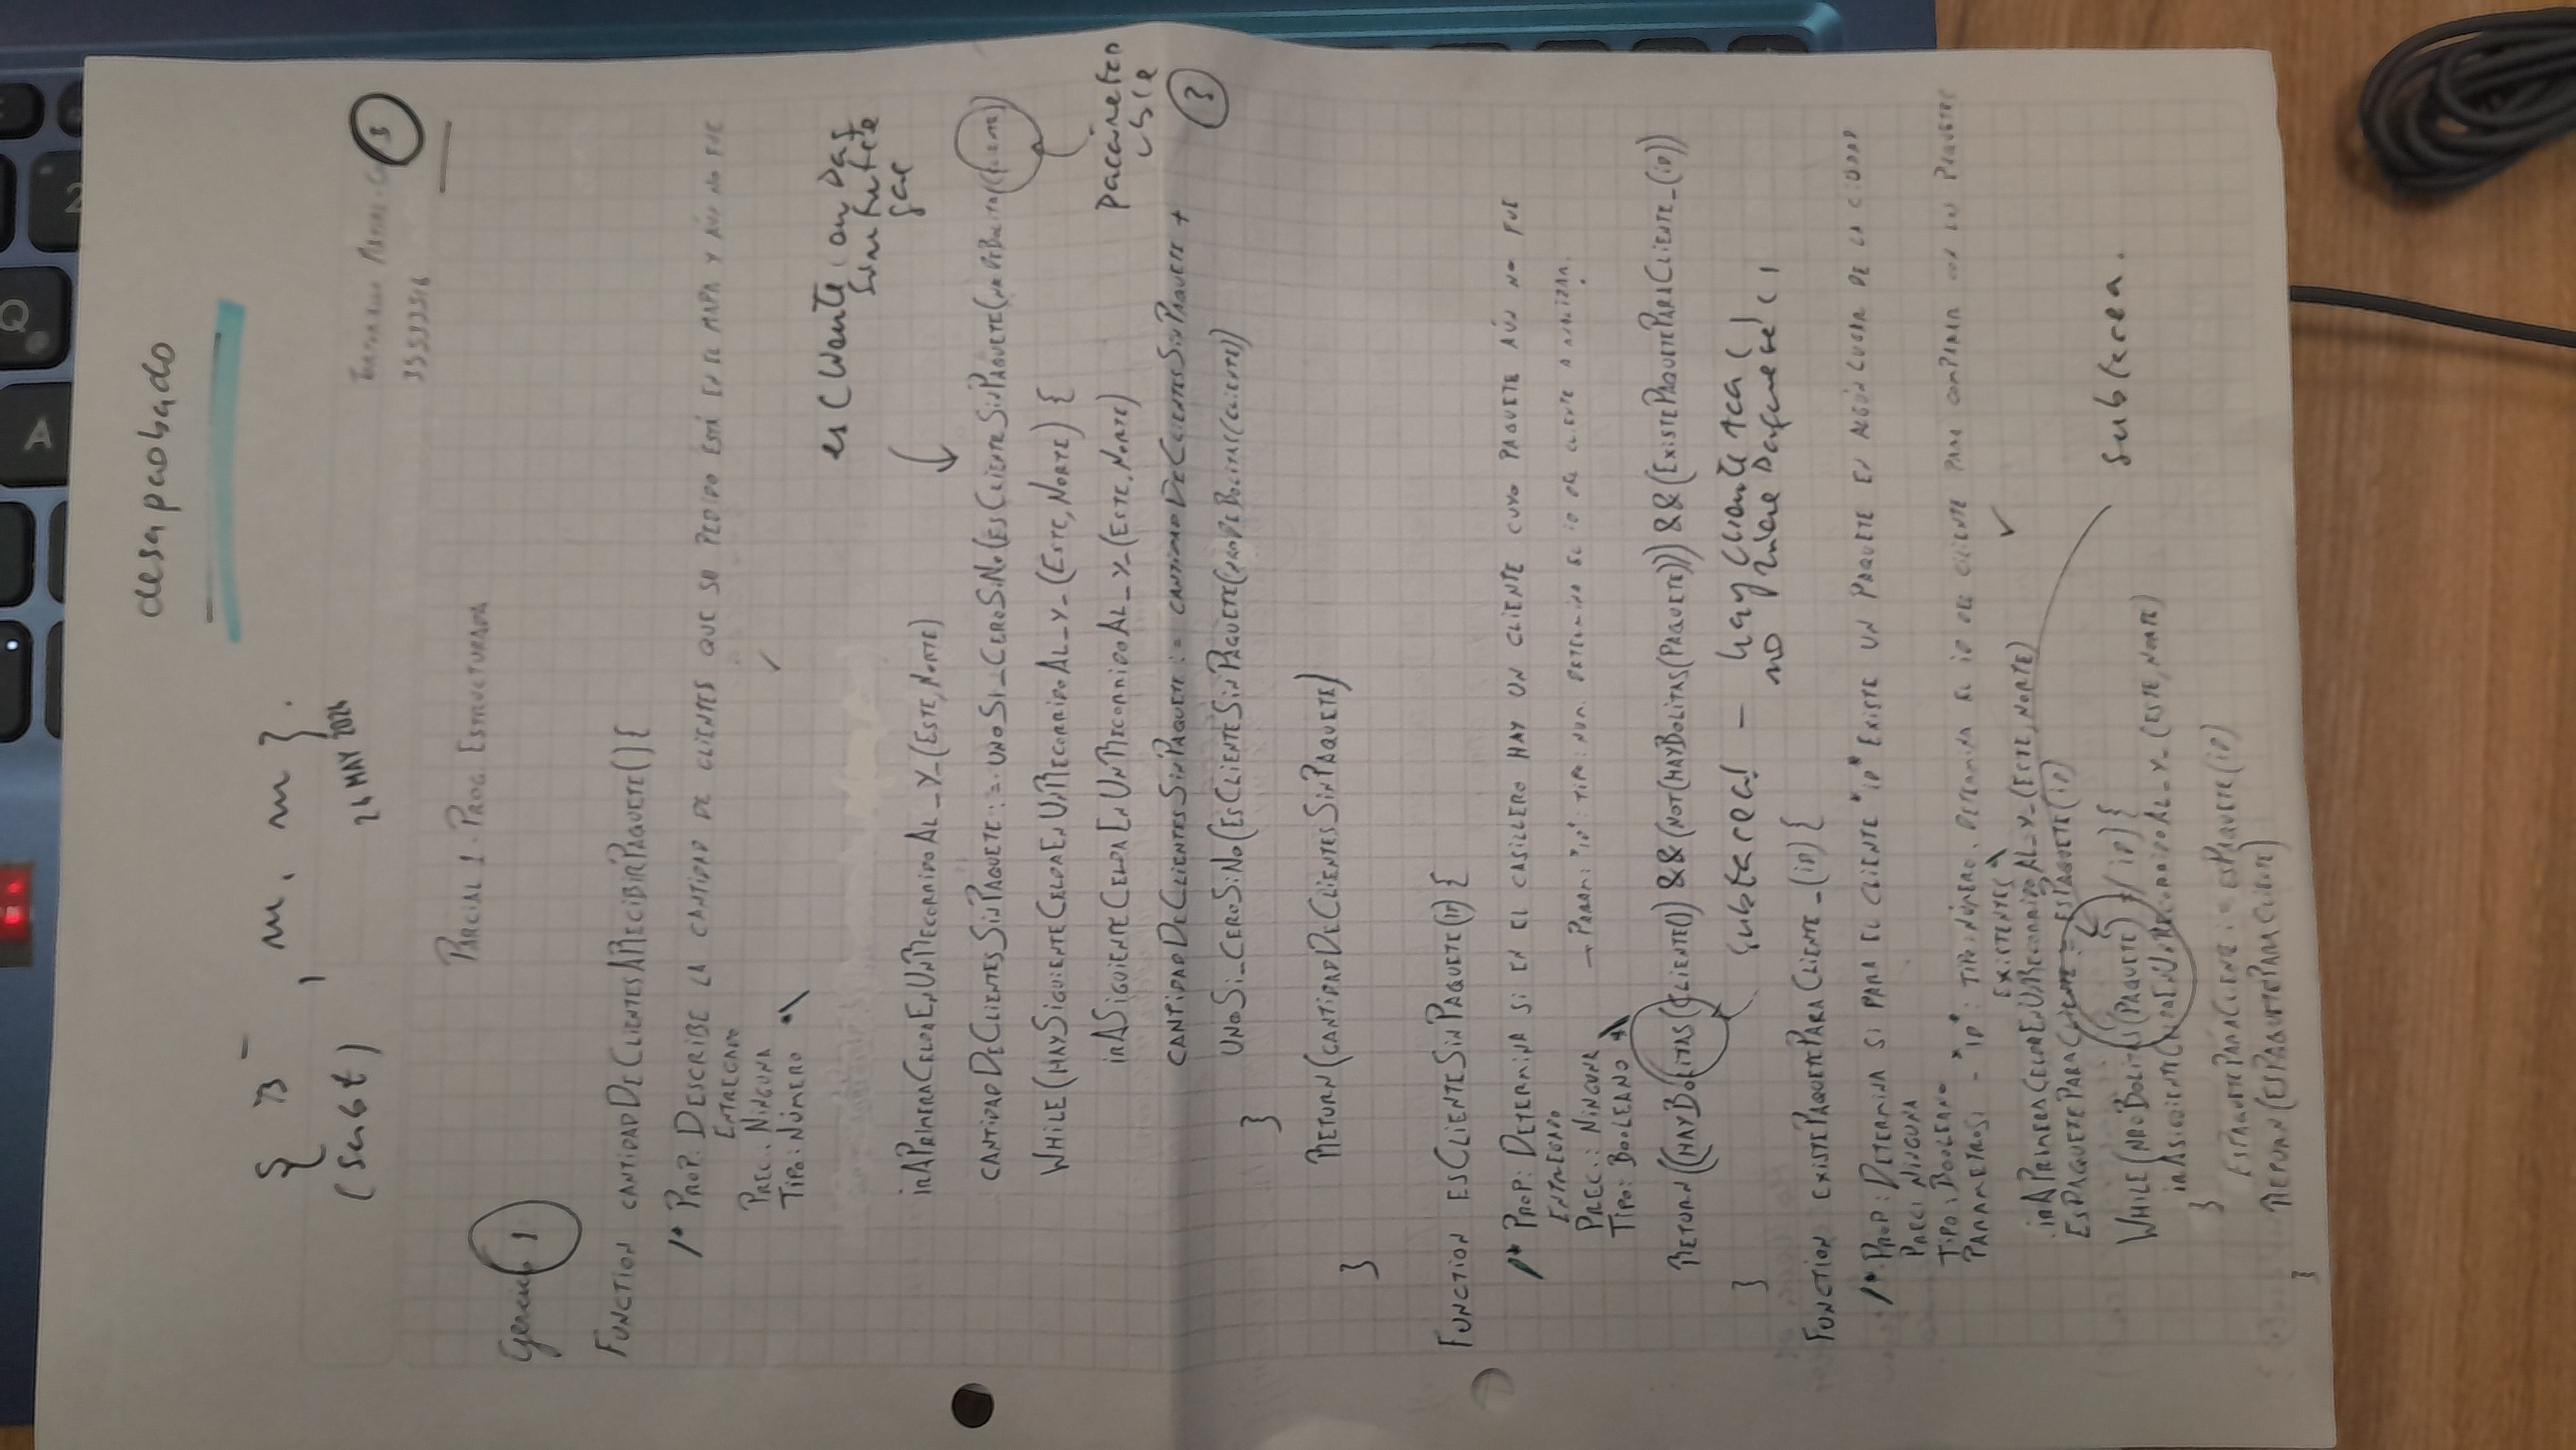 desaprobado
{ B⁻ , m, m }.
(subt)
24 MAY 2024
3
35533516
PARCIAL 1 - PROG. ESTRUCTURADA
1
FUNCTION CANTIDADDECLIENTESARECIBIRPAQUETE(){
/* PROP: DESCRIBE LA CANTIDAD DE CLIENTES QUE SU PEDIDO ESTÁ EN EL MAPA Y AÚN NO FUE
ENTREGADO
PREC.: NINGUNA
TIPO: NÚMERO *\
es Cliente con Paq
sin entre
gar
irAPRIMERACELDAENUNRECORRIDOAL_Y_(ESTE, NORTE)
CANTIDADDECLIENTESSINPAQUETE := UNOSI_CEROSINO(ESCLIENTESINPAQUETE(
WHILE(HAYSIGUIENTECELDAENUNRECORRIDOAL_Y_(ESTE, NORTE) {
irASIGUIENTECELDAENUNRECORRIDOAL_Y_(ESTE, NORTE)
parámetro
CANTIDADDECLIENTESSINPAQUETE := CANTIDADDECLIENTESSINPAQUETE +
3
UNOSI_CEROSINO(ESCLIENTESINPAQUETE(NRODEBOLITAS(CLIENTE))
}
RETURN(CANTIDADDECLIENTESSINPAQUETE)
}
FUNCTION ESCLIENTESINPAQUETE(ID) {
/* PROP: DETERMINA SI EN EL CASILLERO HAY UN CLIENTE CUYO PAQUETE AÚN NO FUE
ENTREGADO
PREC.: NINGUNA → PARAM: "ID": TIPO: NUM. DETERMINA EL ID DEL CLIENTE A ANALIZAR.
TIPO: BOOLEANO *\
RETURN((HAYBOLITAS(CLIENTE()) && (NOT(HAYBOLITAS(PAQUETE))) && (EXISTEPAQUETEPARACLIENTE_(ID))
subtarea! - hay Cliente Aca ()
}
no tiene Paquete ()
FUNCTION EXISTEPAQUETEPARACLIENTE_(ID) {
/* PROP: DETERMINA SI PARA EL CLIENTE "ID" EXISTE UN PAQUETE EN ALGÚN LUGAR DE LA CIUDAD
PREC: NINGUNA
TIPO: BOOLEANO
PARAMETROS: - "ID": TIPO: NÚMERO. DETERMINA EL ID DEL CLIENTE PARA COMPARAR CON LOS PAQUETES
EXISTENTES *\
irAPRIMERACELDAENUNRECORRIDOAL_Y_(ESTE, NORTE)
ESPAQUETEPARACLIENTE := ESPAQUETE(ID)
subtarea.
WHILE(NROBOLITAS(PAQUETE) =/ ID) {
irASIGUIENTECELDAENUNRECORRIDOAL_Y_(ESTE, NORTE)
}
ESPAQUETEPARACLIENTE := ESPAQUETE(ID)
RETURN(ESPAQUETEPARACLIENTE)
}